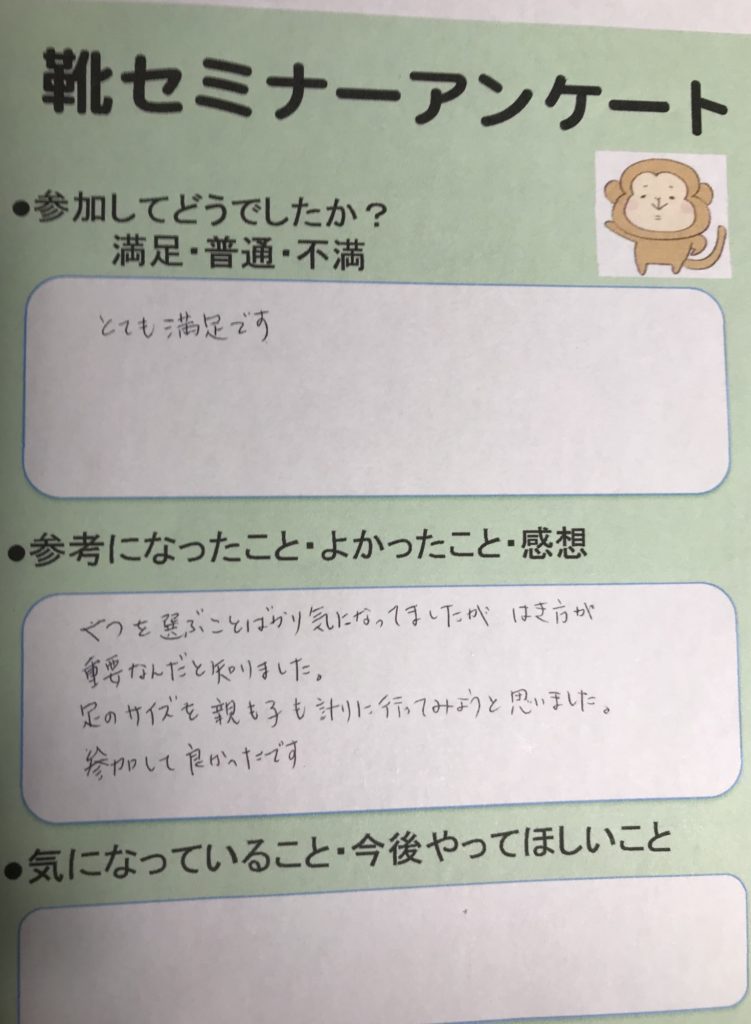 靴セミナーアンケート
●参加してどうでしたか？
満足・普通・不満
とても満足です
●参考になったこと・よかったこと・感想
くつを選ぶことばかり気になってましたが はき方が
重要なんだと知りました。
足のサイズを親も子も計りに行ってみようと思いました。
参加して良かったです
●気になっていること・今後やってほしいこと